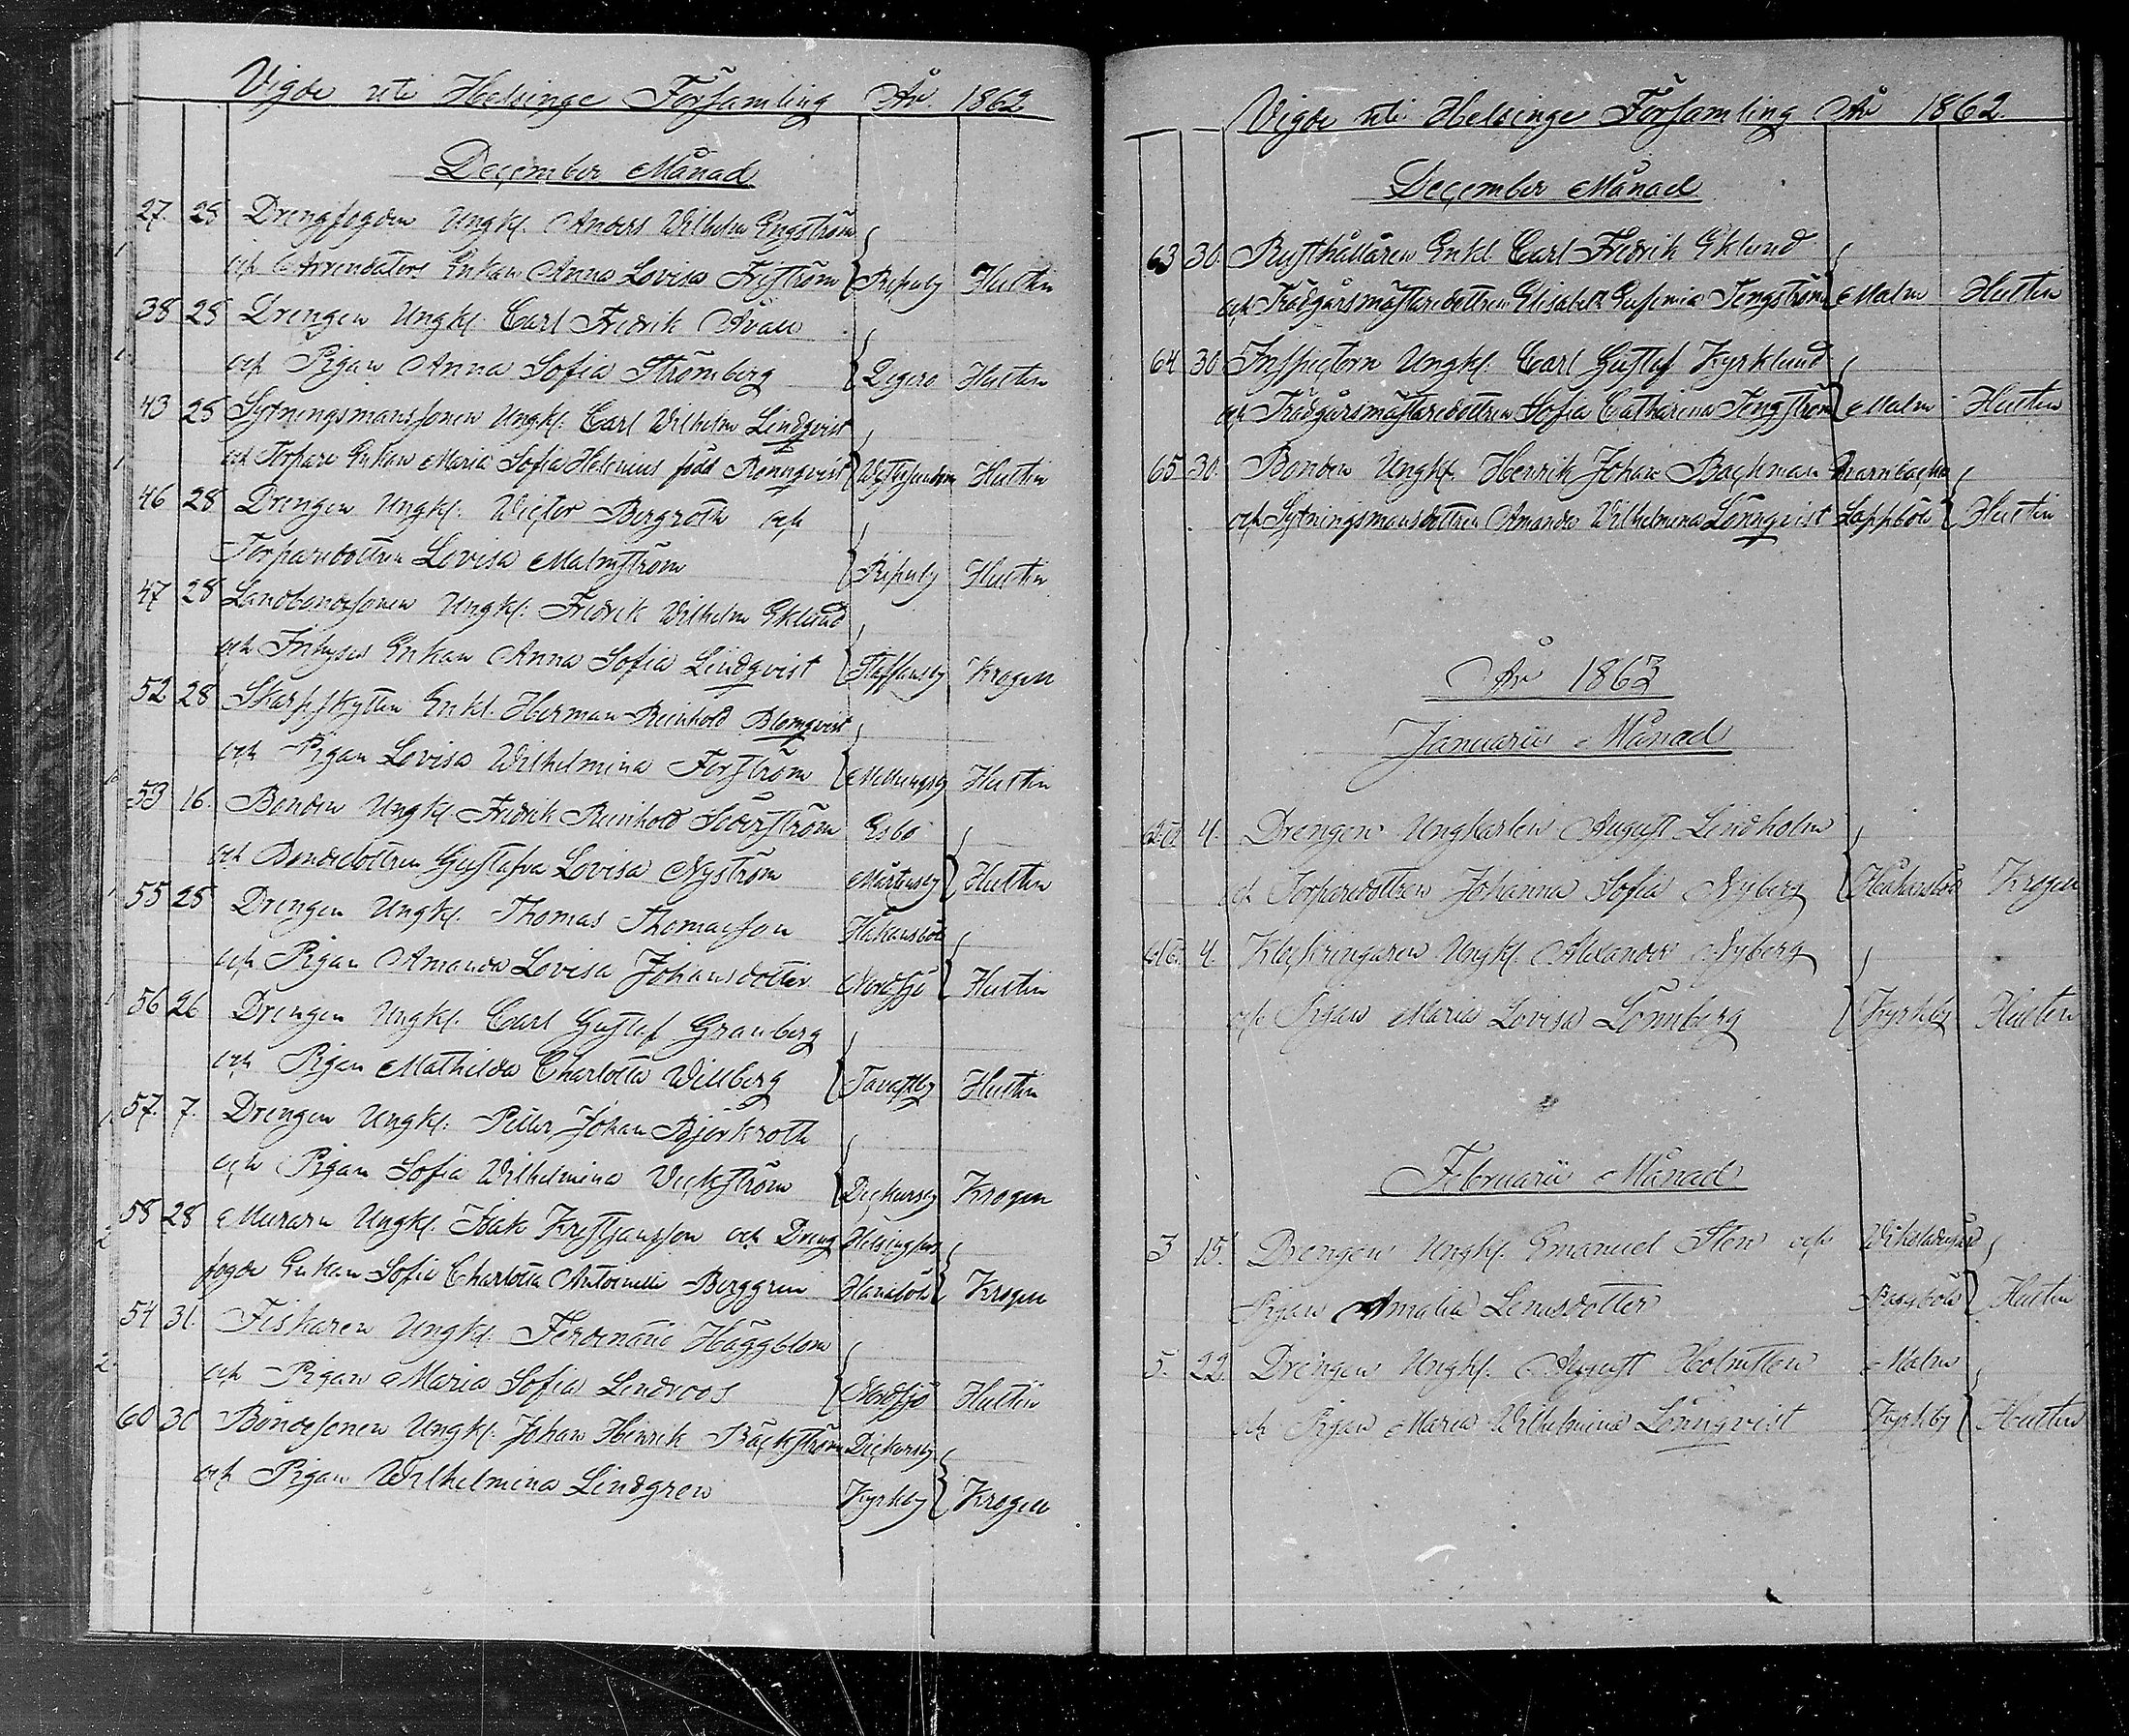 Vigde uti Helsinge Församling År 1862
December Månad
27. 25 Drengfogden Ungk. Anders Wilhelm Engström
och Arrendators Enkan Anna Lovisa Friström Hultin
38 25 Drengen Ungk. Carl Fredrik
och Pigan Anna Sofia Strömberg Hultin
43 25 Sytningsmanssonen Ungk. Carl Wilhelm Lindqvist
och Torpare Enkan Maria Sofia Helenius född Rönnqvist Hultin
46 28 Drengen Ungk. Victor Bergroth och
Torparedottren Lovisa Malmström Hultin
47 28 Landbondesonen Ungk. Fredrik Wilhelm Eklund
och Inhyses Enkan Anna Sofia Lindqvist Staffansby Krogell
52 28 Skarpskytten Enkl. Herman Reinhold Blomqvist
och Pigan Lovisa Wilhelmina Forström Mellungsby Hultin
53 16. Bonden Ungk. Fredrik Reinhold Söderström Esbo
och Bondedottren Gustafva Lovisa Nyström Mårtensby Hultin
55 28 Drengen Ungk. Thomas Thomasson Håkansböle
och Pigan Amanda Lovisa Johansdotter Nordsjö Hultin
56 26 Drengen Ungk. Carl Gustaf Granberg
och Pigan Mathilda Charlotta Willberg Tavastby Hultin
57. 7. Drengen Ungk. Petter Johan Björkroth
och Pigan Sofia Wilhelmina Weckström Dickursby Krogell
58 28 Muraren Ungk. Isak Kristjansson och Dreng Helsingfors
fogde Enkan Sofia Charlotta Antoinette Berggren Hanaböle Krogell
54 31. Fiskaren Ungk. Ferdinand Häggblom
och Pigan Maria Sofia Lindroos Nordsjö Hultin
60 30 Bondesonen Ungk. Johan Henrik Bäckström Dickursby
och Pigan Wilhelmina Lindgren Kyrkby Krogell
Vigde uti Helsinge Församling År 1862.
December Månad
63 30. Rusthållaren Enkl. Carl Fredrik Eklund
och Trädgårsmästaredottren Elisabeth Eufemia Tengström Malm Hultin
64 30 Inspectorn Ungk. Carl Gustaf Kyrklund
och Trädgårsmästaredottren Sofia Catharina Tengström Malm Hultin
65 30. Bonden Ungk. Henrik Johan Backman Qvarnbacka
och Sytningsmansdottren Amanda Wilhelmina Lönnqvist Lappböle Hultin
År 1863
Januarii Månad
4. Drengen Ungkarlen August Lindholm
och Torparedottren Johanna Sofia Nyberg Håkansböle Krogell
4. Klockringaren Ungk. Alexander Nyberg
och Pigan Maria Lovisa Lönnberg Kyrkby Hultin
Februarii Månad
3 15. Drengen Ungk. Emanuel Sten och
Pigan Amalia Lenasdotter Hultin
5. 22. Drengen Ungk. August Holmsten Malm
och Pigan Maria Wilhelmina Lönnqvist Kyrkby Hultin